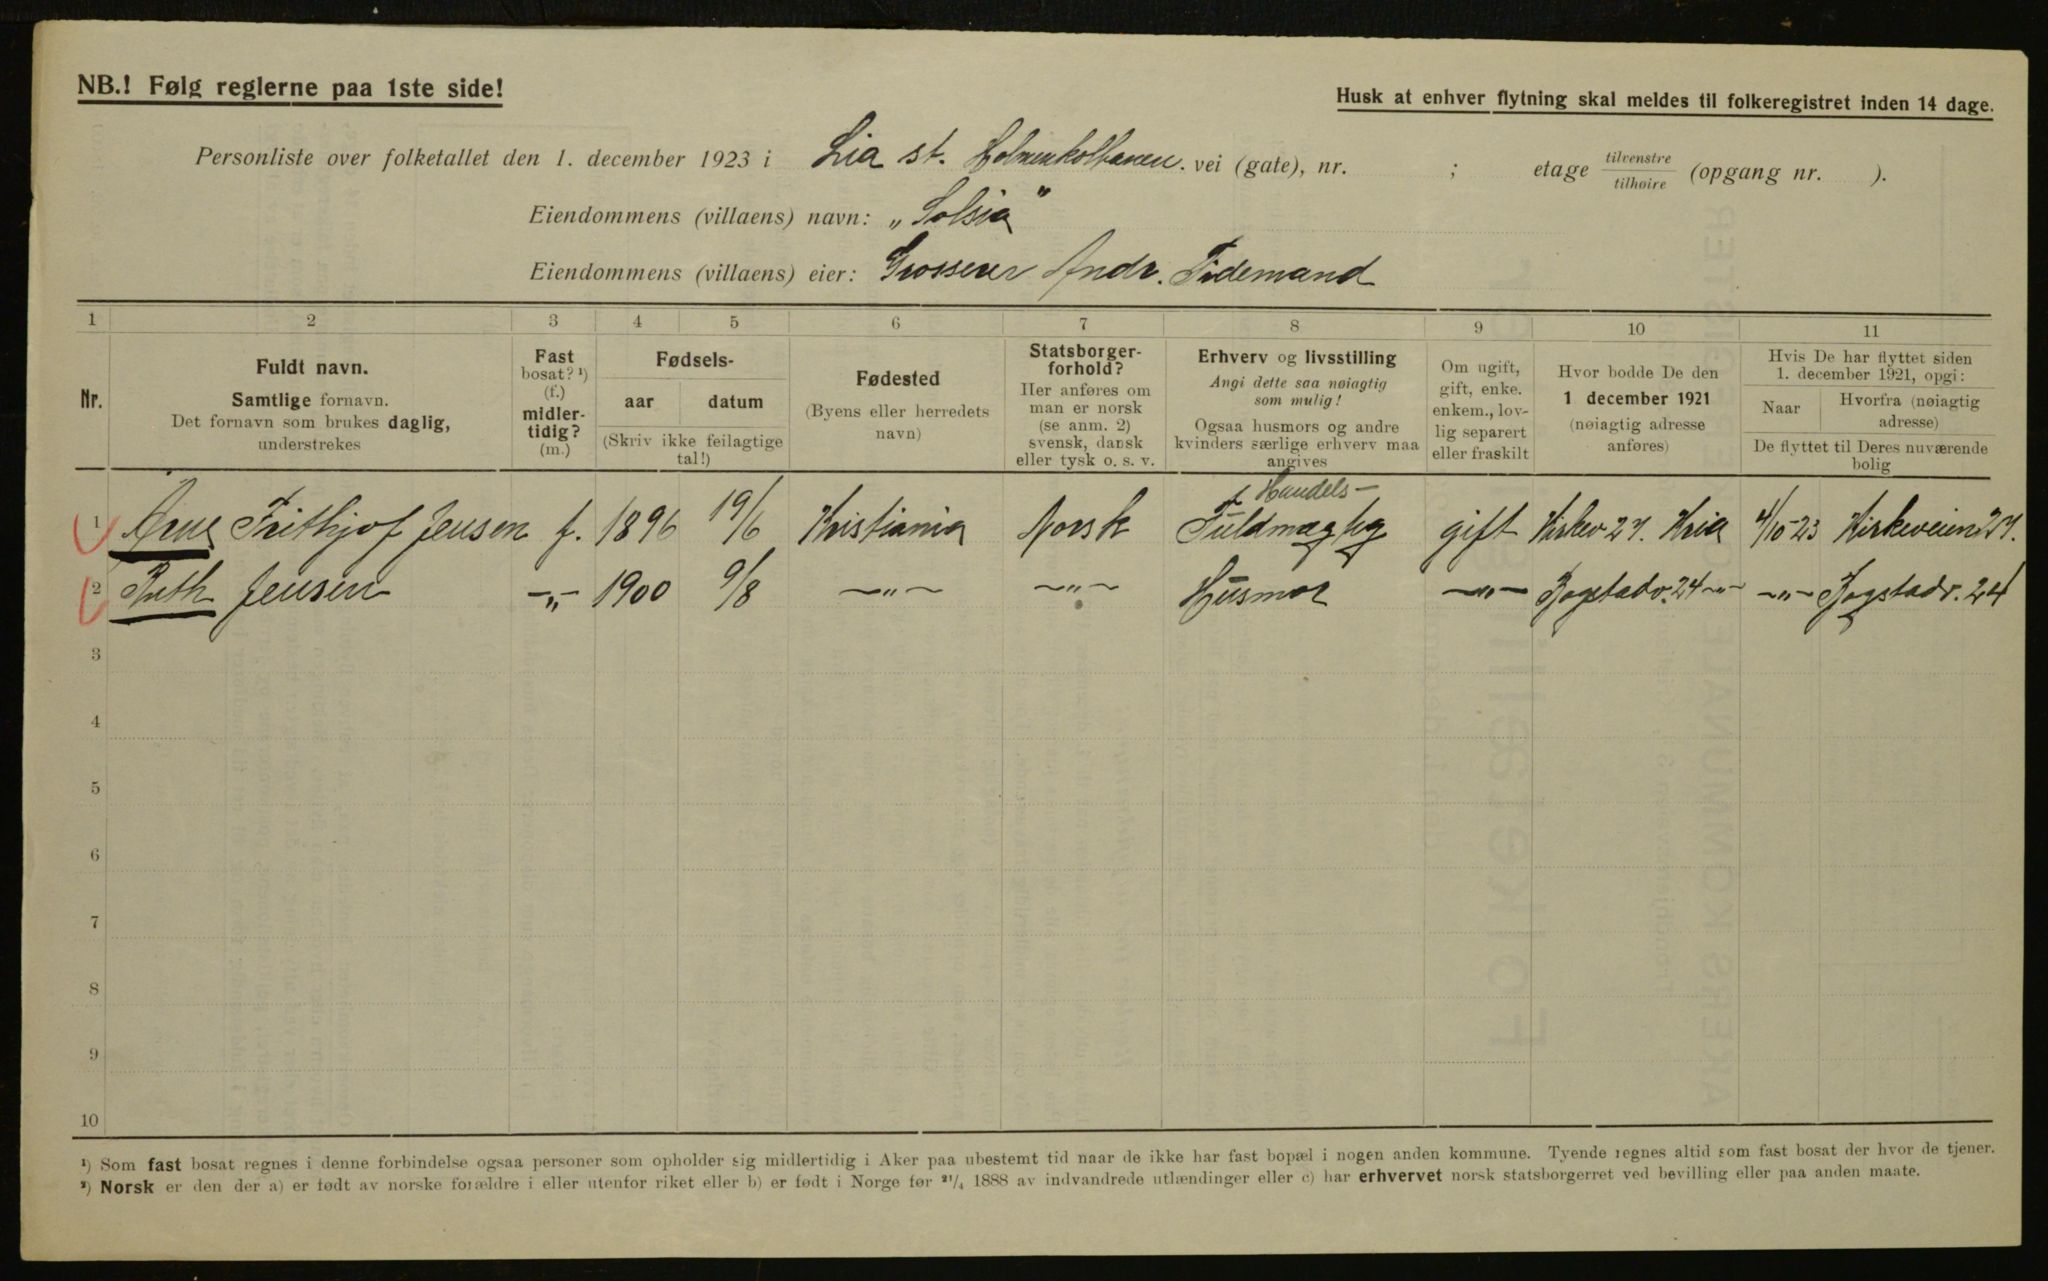 NB.! Følg reglerne paa 1ste side!
Husk at enhver flytning skal meldes til folkeregistret inden 14 dage.
Personliste over folketallet den 1. december 1923 i Lia st. Holmenkolbanen. vei (gate), nr. ; etage tilvenstre tilhøire (opgang nr. ).
Eiendommens (villaens) navn: „Solsia"
Eiendommens (villaens) eier: Grosserer Andr. Tidemand
1 2 3 4 5 6 7 8 9 10 11
Nr.
Fuldt navn.
Samtlige fornavn.
Det fornavn som brukes daglig,
understrekes
Fast
bosat? ¹)
(f.)
midler-
tidig?
(m.)
Fødsels-
aar datum
(Skriv ikke feilagtige
tal!)
Fødested
(Byens eller herredets
navn)
Statsborger-
forhold?
Her anføres om
man er norsk
(se anm. 2)
svensk, dansk
eller tysk o. s. v.
Erhverv og livsstilling
Angi dette saa nøiagtig
som mulig!
Ogsaa husmors og andre
kvinders særlige erhverv maa
angives
Om ugift,
gift, enke.
enkem., lov-
lig separert
eller fraskilt
Hvor bodde De den
1 december 1921
(nøiagtig adresse
anføres)
Hvis De har flyttet siden
1. december 1921, opgi:
Naar Hvorfra (nøiagtig
adresse)
De flyttet til Deres nuværende
bolig
Handels-
1 Arne Frithjof Jensen f. 1896 19/6 Kristiania Norsk Fuldmægtig gift Kirkev 27. Kria 4/10-23 Kirkeveien 27.
2 Ruth Jensen -„- 1900 9/8 -„- -„- Husmor -„- Bogstadv. 24 -„- -„- Bogstadv. 24
3
4
5
6
7
8
9
10
¹) Som fast bosat regnes i denne forbindelse ogsaa personer som opholder sig midlertidig i Aker paa ubestemt tid naar de ikke har fast bopæl i nogen anden kommune. Tyende regnes altid som fast bosat der hvor de tjener.
²) Norsk er den der a) er født av norske forældre i eller utenfor riket eller b) er født i Norge før ²¹/₄ 1888 av indvandrede utlændinger eller c) har erhvervet norsk statsborgerret ved bevilling eller paa anden maate.